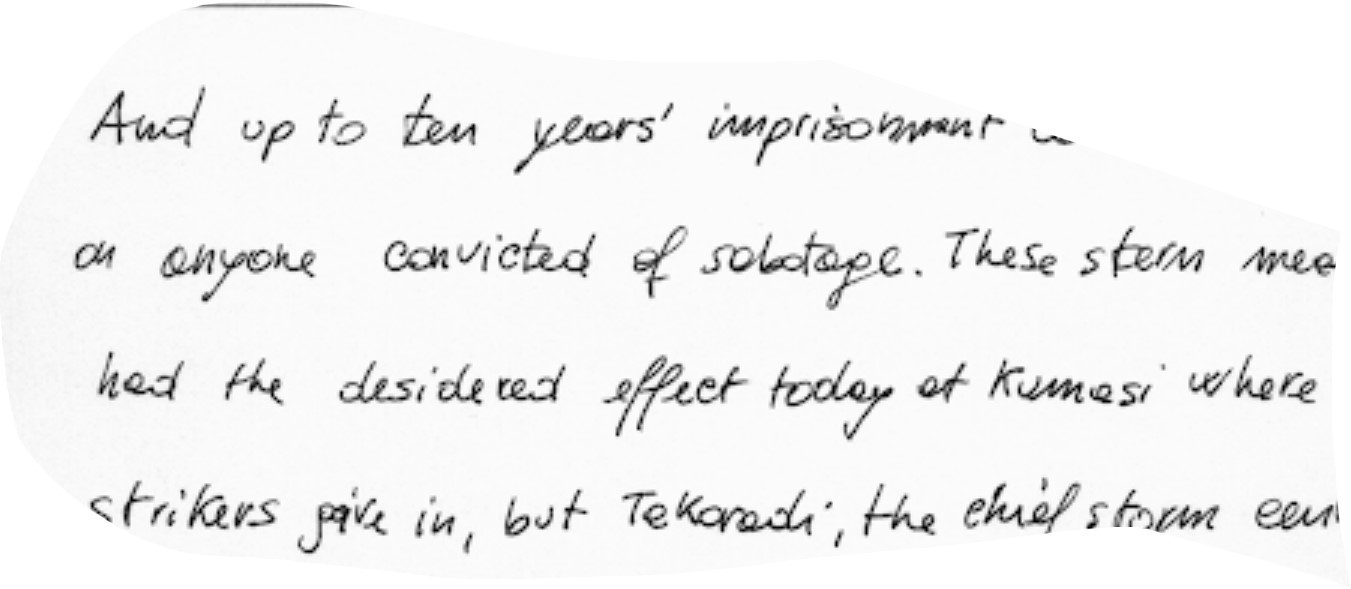 And up to ten years' imprisonment
on anyone convicted of sabotage. These stern
had the desidered effect today at Kumasi where
strikers give in, but Takoradi, the chief storm